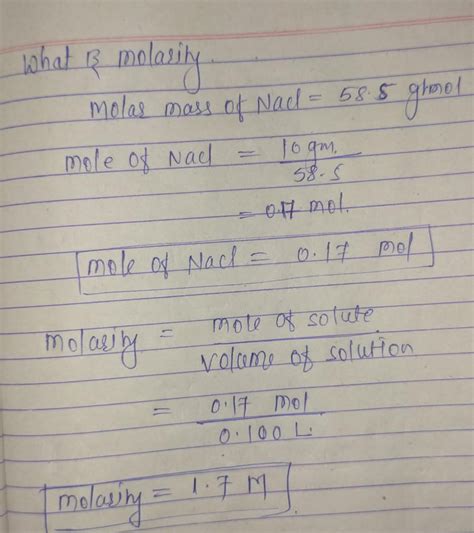 What is molarity.
Molar mass of Nacl = 58.5 g/mol
mole of Nacl = 10 gm. / 58.5
= 0.17 mol.
mole of Nacl = 0.17 mol
molarity = mole of solute / volume of solution
= 0.17 mol / 0.100 L.
molarity = 1.7 M